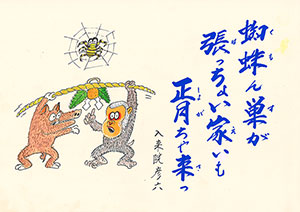 蜘蛛ん巣が
張っちょい家いも
正月ちゃ来っ
入来院彦六